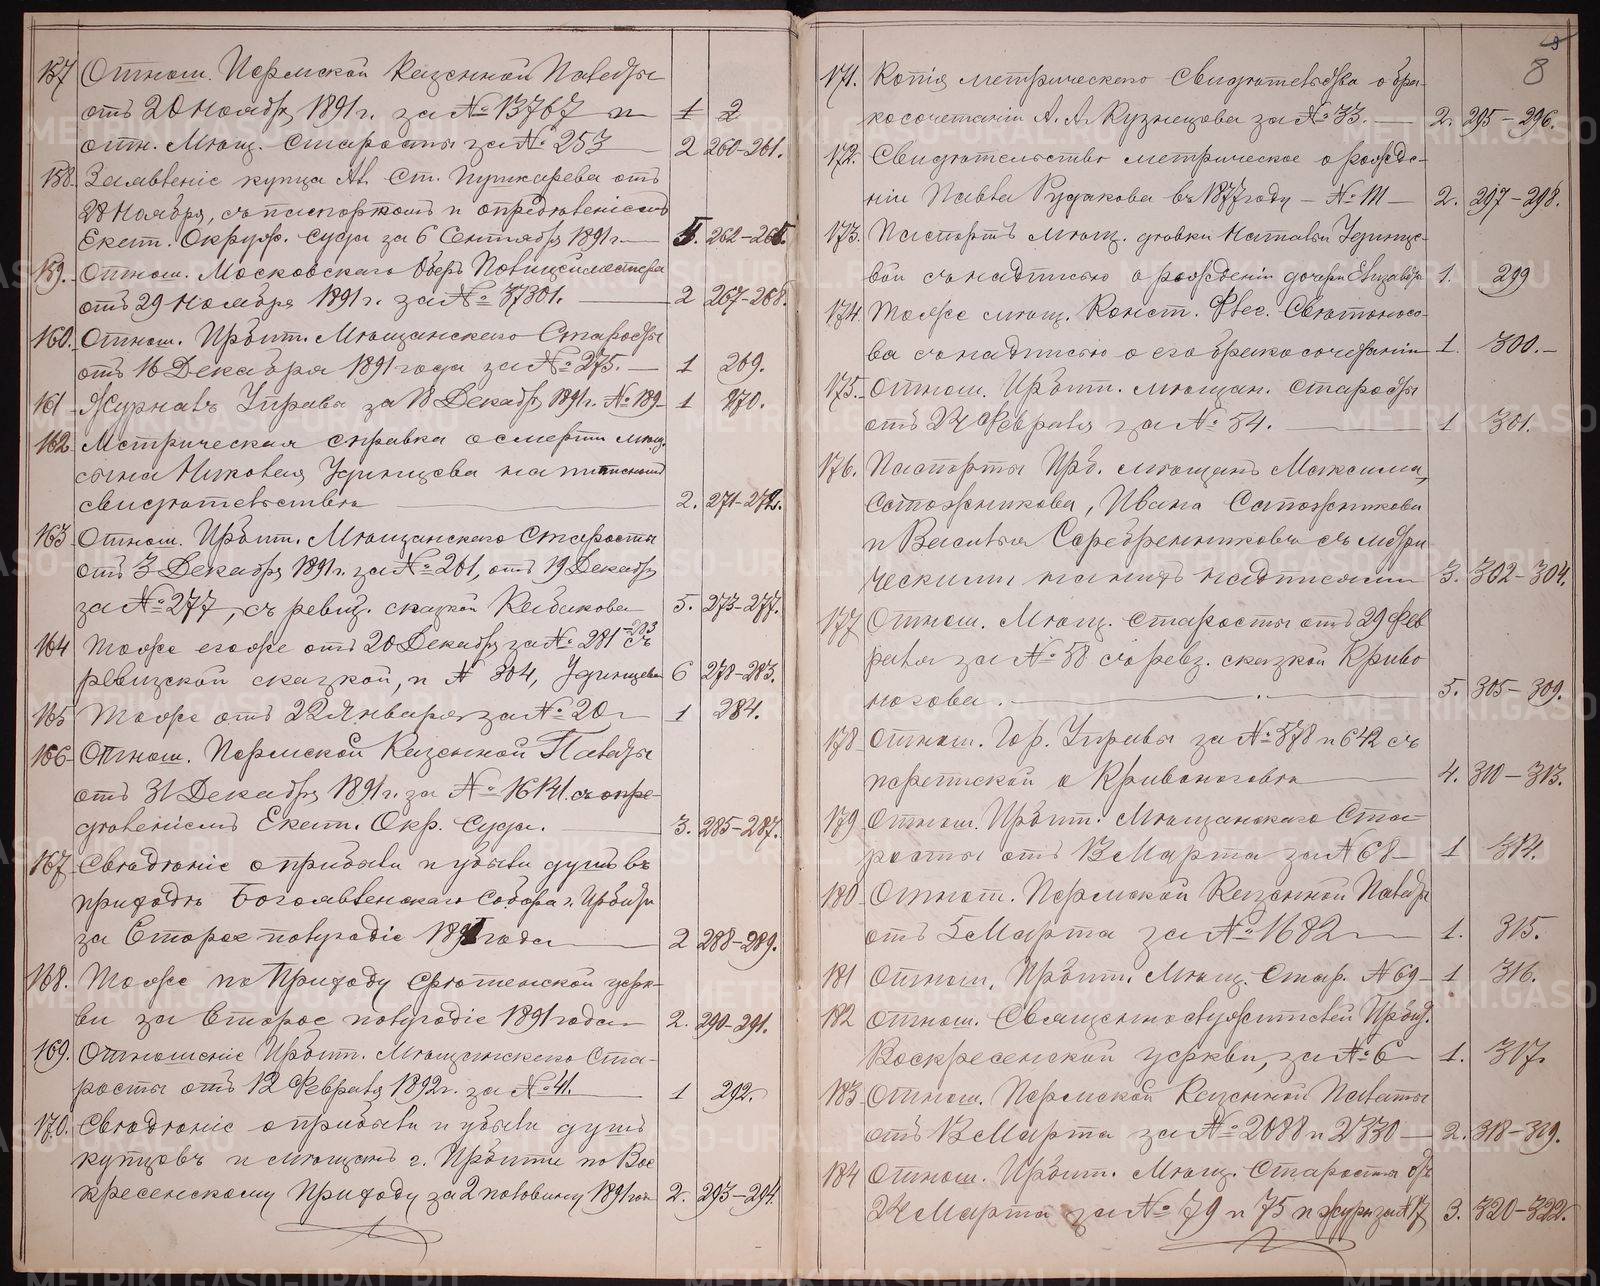 157 Отнош. Пермской Казенной Палаты
отъ 20 Ноябр. 1891 г. за № 13767 и 1 2
отн. Мѣщ. Старосты за № 253 2 260-261.
158. Заявленіе купца Ал. Ст. Пушкарева отъ
28 Ноября, съ паспортомъ и опредѣленіемъ
Екат. Окруж. Суда за 6 Сентября 1891 г. 262-26
159. Отнош. Московскаго Оберъ Полицеймейстера
отъ 29 Ноября 1891 г. за № 37301. 2 267-268.
160. Отнош. Ирбит. Мѣщанскаго Старосты
отъ 16 Декабря 1891 года за № 275. 1 269.
161 Журналъ Управы за 18 Декабр. 1891 г. № 189 1 270.
162 Метрическая справка о смерти мѣщ.
сына Николая Удинцева на
свидѣтельствѣ 2. 271-272.
163 Отнош. Ирбит. Мѣщанскаго Старосты
отъ 3 Декабря 1891 г. за № 261, отъ 19 Декабр.
за № 277, съ ревиз. сказкой Кабакова 5. 273-277.
164 Тоже егоже отъ 20 Декабр. за № 281-283 съ
ревизской сказкой, и № 304, Удинцева 6 278-283.
165 Тоже отъ 22 Января за № 20 1 284.
166 Отнош. Пермской Казенной Палаты
отъ 31 Декабря 1891 г. за № 16141 съ опре-
дѣленіемъ Екат. Окр. Суда. 3. 285-287.
167 Свѣдѣніе о прибыли и убыли душъ въ
приходѣ Богоявленскаго Собора г. Ирбита
за Второе полугодіе 1891 года 2 288-289.
168. Тоже по Приходу Срѣтенской церк-
ви за Второе полугодіе 1891 года 2. 290-291.
169. Отношеніе Ирбит. Мѣщанскаго Ста-
росты отъ 12 Февраля 1892 г. за № 41. 1 292.
170. Свѣдѣніе о прибыли и убыли душъ
купцовъ и мѣщанъ г. Ирбита по Вос
кресенскому Приходу за 2 половину 1891 год 2. 293-294
8
171. Копія метрическаго свидѣтельства о бра-
косочетаніи А. А. Кузнецова за № 33. 2. 295-296.
172. Свидѣтельство метрическое о рожде-
ніи Павла Рудакова въ 1877 году - № 111 - 2. 297-298.
173. Паспортъ мѣщ. дѣвки Натальи Удинце-
вой съ надписью о рожденіи дочери Елизавѣты 1. 299
174. Тоже мѣщ. Конст. Святоносо-
ва съ надписью о его бракосочетаніи 1. 300.-
175. Отнош. Ирбит. мѣщан. Старосты
отъ 24 Февраля за № 54. 1 301.
176. Паспорты Ирб. мѣщанъ Максима
Сапожникова, Ивана Сапожникова
и Василья Серебренникова съ метри
ческими на нихъ надписями 3. 302-304.
177 Отнош. Мѣщ. Старосты отъ 29 Фев
раля за № 58 съ ревз. сказкой Криво
ногова. 5. 305-309.
178 Отнош. Гор. Управы за № 578 и 642 съ
перепиской о Кривоноговѣ 4. 310-313.
179 Отнош. Ирбит. Мѣщанскаго Ста-
росты отъ 13 Марта за № 68 1 314.
180 Отнош. Пермской Казенной Палаты
отъ 5 Марта за № 1682 1. 315.
181 Отнош. Ирбит. Мѣщ. Стар. № 69 1 316.
182 Отнош. Священнослужителей Ирбит.
Воскресенской церкви, за № 6 1. 317.
183 Отнош. Пермской Казенной Палаты
отъ 13 Марта за № 2088 и 2330 2. 318-319.
184 Отнош. Ирбит. Мѣщ. Старосты отъ
24 Марта за № 79 и 75 и журн за № 17 3. 320-322.